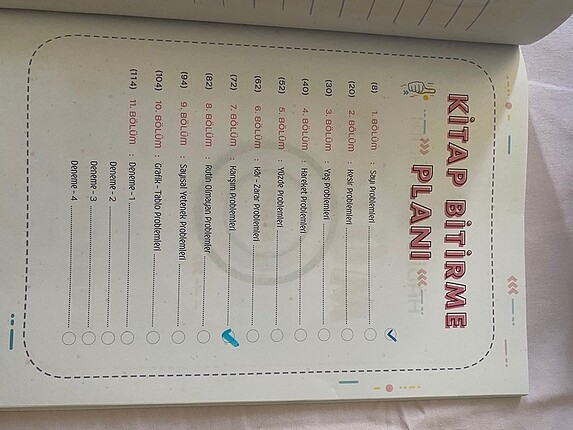 KİTAP BİTİRME
PLANI
(8) 1. BÖLÜM : Sayı Problemleri
(20) 2. BÖLÜM : Kesir Problemleri
(30) 3. BÖLÜM : Yaş Problemleri
(40) 4. BÖLÜM : Hareket Problemleri
(52) 5. BÖLÜM : Yüzde Problemleri
(62) 6. BÖLÜM : Kâr - Zarar Problemleri
(72) 7. BÖLÜM : Karışım Problemleri
(82) 8. BÖLÜM : Rutin Olmayan Problemler
(94) 9. BÖLÜM : Sayısal Yetenek Problemleri
(104) 10. BÖLÜM : Grafik - Tablo Problemleri
(114) 11. BÖLÜM : Deneme - 1
Deneme - 2
Deneme - 3
Deneme - 4